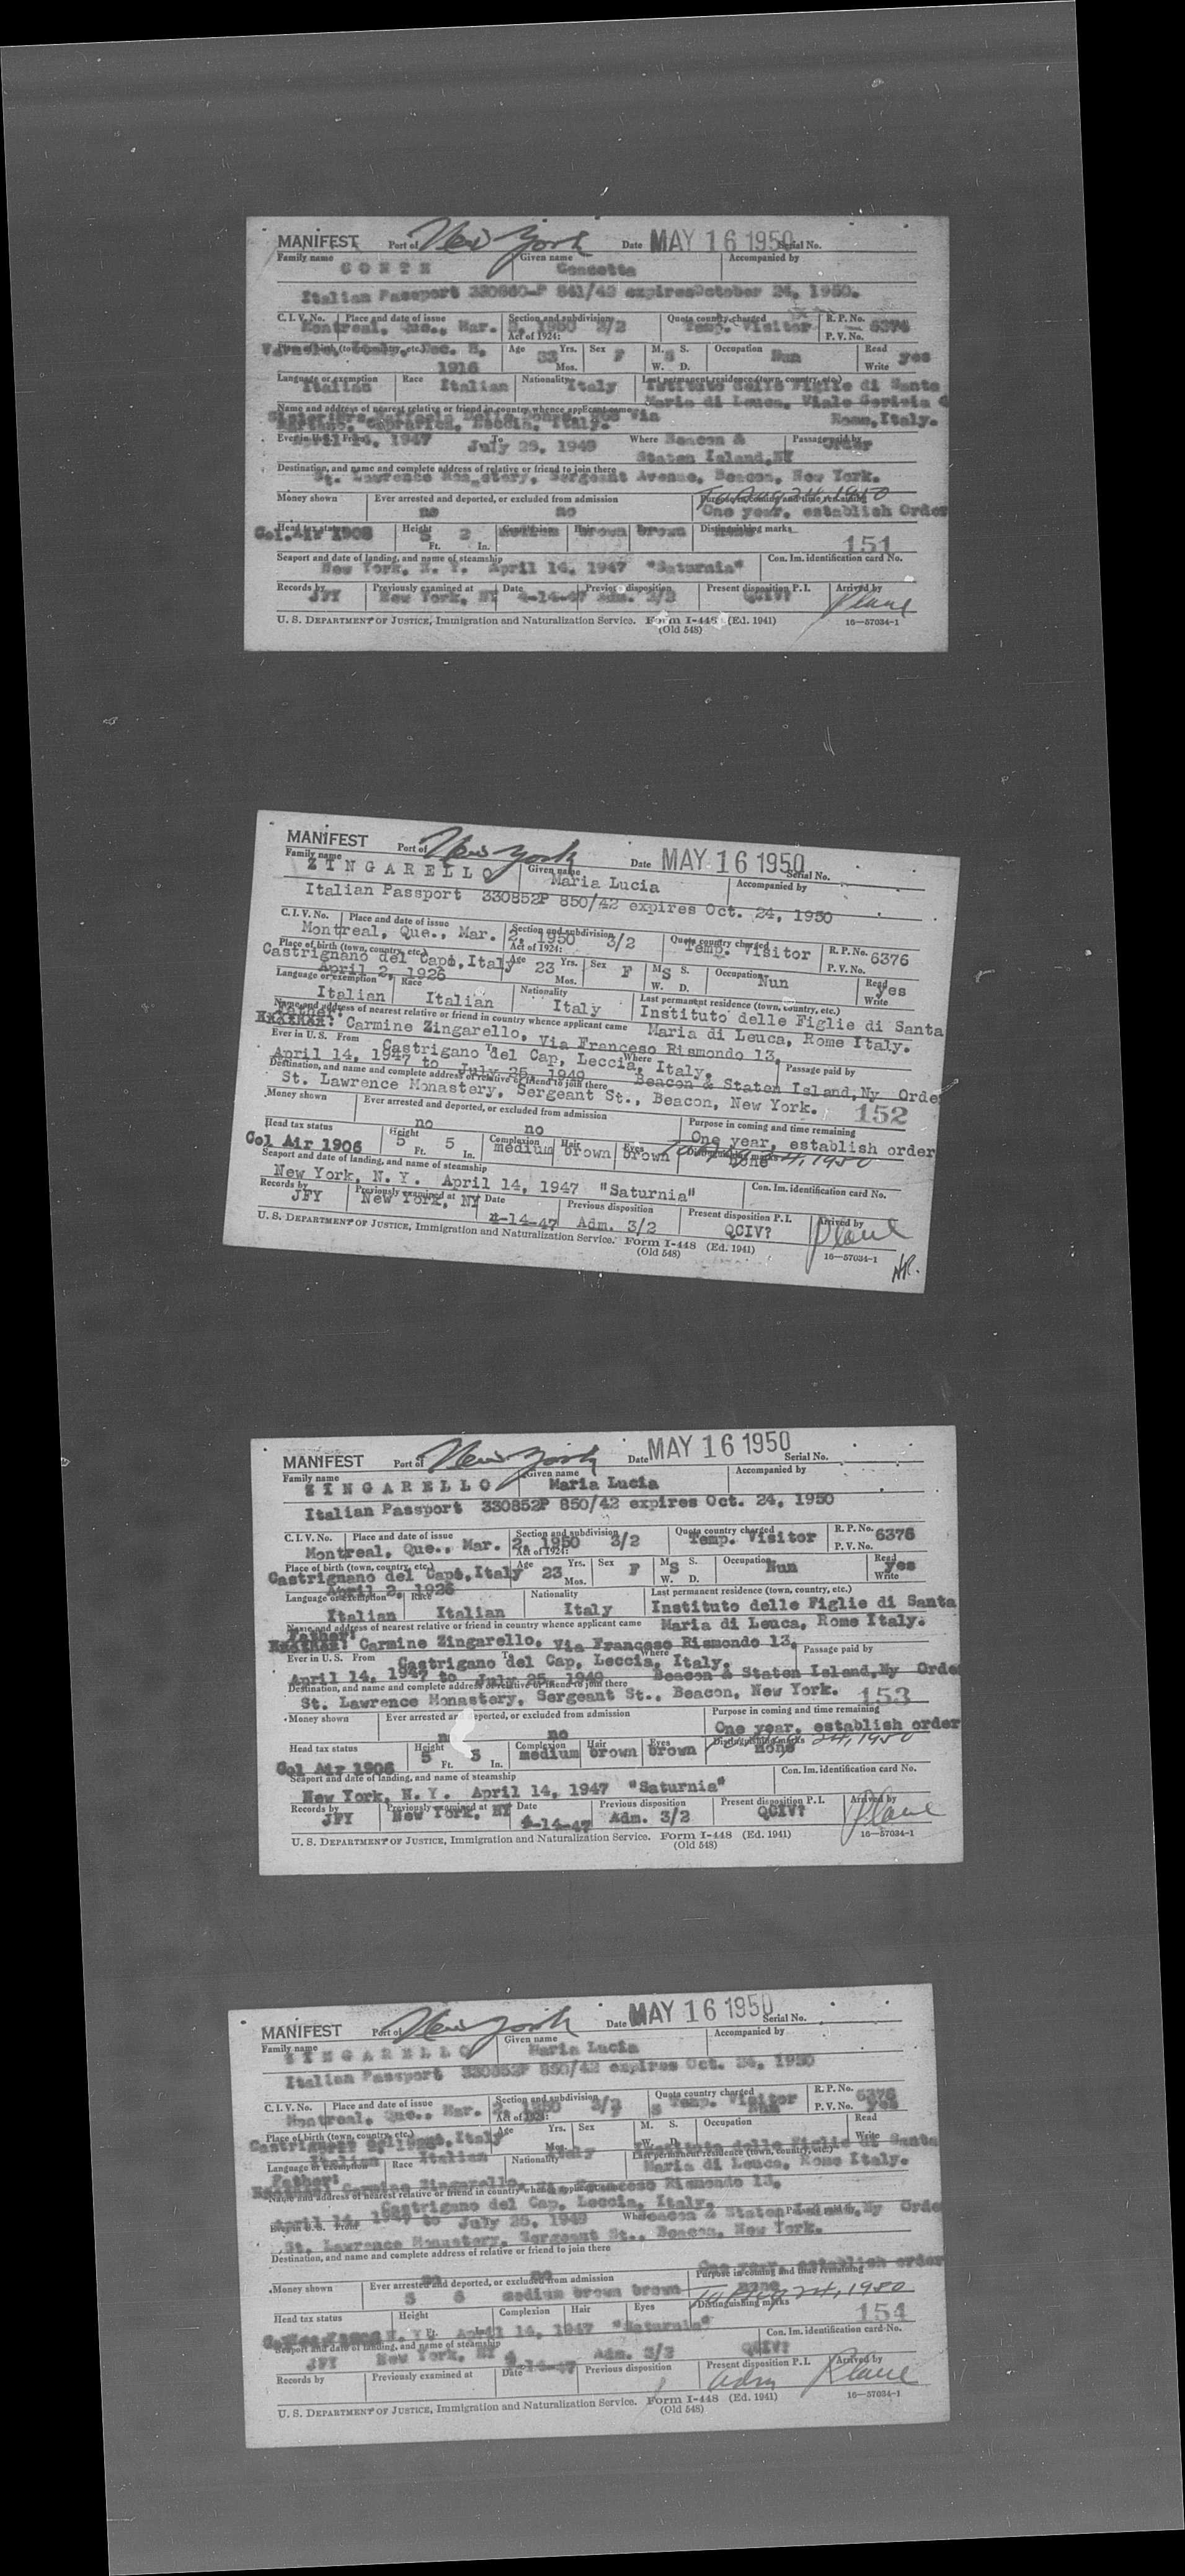 MANIFEST Port of New York Date MAY 16 1950 Serial No.
Family name CONTE Given name Concetta Accompanied by
Italian Passport 330860-P 841/42 expires October 24, 1950.
C. I. V. No. Place and date of issue Section and subdivision Quota country charged R. P. No. 6374
Montreal, Que., Mar. 2, 1950 3/2 Temp. Visitor
Act of 1924: P. V. No.
Place of birth (town, country, etc.) Dec. 8, Age 33 Yrs. Sex F M. S. S Occupation Nun Read yes
1916 Mos. W. D. Write
Language or exemption Italian Race Italian Nationality Italy Last permanent residence (town, country, etc.) Istituto delle Figlie di Santa
Maria di Leuca, Viale Gorizia
Name and address of nearest relative or friend in country whence applicant came Via Rome, Italy.
Caprarica, Leccia, Italy.
Ever in U. S. From 1947 To July 25, 1949 Where Beacon & Passage paid by Order
Staten Island, NY
Destination, and name and complete address of relative or friend to join there
St. Lawrence Monastery, Sergeant Avenue, Beacon, New York.
Money shown Ever arrested and deported, or excluded from admission Purpose in coming and time remaining
no no One year, establish Order
Head tax status Col. Air 1908 Height 5 Ft. 2 In. Complexion medium Hair brown Eyes brown Distinguishing marks none 151
Seaport and date of landing, and name of steamship Con. Im. identification card No.
New York, N. Y. April 14, 1947 "Saturnia"
Records by JFY Previously examined at New York, NY Date 4-14-47 Previous disposition Adm. 3/2 Present disposition P. I. QCIV? Arrived by Plane
U. S. DEPARTMENT OF JUSTICE, Immigration and Naturalization Service. Form I-448 (Ed. 1941) 16—57034-1
(Old 548)
MANIFEST Port of New York Date MAY 16 1950 Serial No.
Family name ZINGARELLO Given name Maria Lucia Accompanied by
Italian Passport 330852P 850/42 expires Oct. 24, 1950
C. I. V. No. Place and date of issue Section and subdivision Quota country charged R. P. No. 6376
Montreal, Que., Mar. 2, 1950 3/2 Temp. Visitor
Act of 1924: P. V. No.
Place of birth (town, country, etc.) Castrignano del Capo, Italy Age 23 Yrs. Sex F M. S. S Occupation Nun Read yes
April 2, 1926 Mos. W. D. Write
Language or exemption Italian Race Italian Nationality Italy Last permanent residence (town, country, etc.) Instituto delle Figlie di Santa
Maria di Leuca, Rome Italy.
Name and address of nearest relative or friend in country whence applicant came
Father: Carmine Zingarello, Via Franceso Rismondo 13,
Castrigano del Cap, Leccia, Italy.
Ever in U. S. From To Where Passage paid by
April 14, 1947 to July 25, 1949 Beacon & Staten Island, Ny Orde
Destination, and name and complete address of relative or friend to join there
St. Lawrence Monastery, Sergeant St., Beacon, New York. 152
Money shown Ever arrested and deported, or excluded from admission Purpose in coming and time remaining
no no One year, establish order
Head tax status Col Air 1906 Height 5 Ft. 5 In. Complexion medium Hair brown Eyes brown Distinguishing marks none 24, 1950
Seaport and date of landing, and name of steamship Con. Im. identification card No.
New York, N. Y. April 14, 1947 "Saturnia"
Records by JFY Previously examined at New York, NY Date 4-14-47 Previous disposition Adm. 3/2 Present disposition P. I. QCIV? Arrived by Plane
U. S. DEPARTMENT OF JUSTICE, Immigration and Naturalization Service. Form I-448 (Ed. 1941) 16—57034-1
(Old 548)
MANIFEST Port of New York Date MAY 16 1950 Serial No.
Family name ZINGARELLO Given name Maria Lucia Accompanied by
Italian Passport 330852P 850/42 expires Oct. 24, 1950
C. I. V. No. Place and date of issue Section and subdivision Quota country charged R. P. No. 6376
Montreal, Que., Mar. 2, 1950 3/2 Temp. Visitor
Act of 1924: P. V. No.
Place of birth (town, country, etc.) Castrignano del Capo, Italy Age 23 Yrs. Sex F M. S. S Occupation Nun Read yes
April 2, 1926 Mos. W. D. Write
Language or exemption Italian Race Italian Nationality Italy Last permanent residence (town, country, etc.) Instituto delle Figlie di Santa
Maria di Leuca, Rome Italy.
Name and address of nearest relative or friend in country whence applicant came
Father: Carmine Zingarello, Via Franceso Rismondo 13,
Castrigano del Cap, Leccia, Italy.
Ever in U. S. From To Where Passage paid by
April 14, 1947 to July 25, 1949 Beacon & Staten Island, Ny Orde
Destination, and name and complete address of relative or friend to join there
St. Lawrence Monastery, Sergeant St., Beacon, New York. 153
Money shown Ever arrested and deported, or excluded from admission Purpose in coming and time remaining
no no One year, establish order
Head tax status Col Air 1906 Height 5 Ft. In. Complexion medium Hair brown Eyes brown Distinguishing marks none 24, 1950
Seaport and date of landing, and name of steamship Con. Im. identification card No.
New York, N. Y. April 14, 1947 "Saturnia"
Records by JFY Previously examined at New York, NY Date 4-14-47 Previous disposition Adm. 3/2 Present disposition P. I. QCIV? Arrived by Plane
U. S. DEPARTMENT OF JUSTICE, Immigration and Naturalization Service. Form I-448 (Ed. 1941) 16—57034-1
(Old 548)
MANIFEST Port of New York Date MAY 16 1950 Serial No.
Family name ZINGARELLO Given name Maria Lucia Accompanied by
Italian Passport 330852P 850/42 expires Oct. 24, 1950
C. I. V. No. Place and date of issue Section and subdivision Quota country charged R. P. No. 6376
Montreal, Que., Mar. 2, 1950 3/2 Temp. Visitor
Act of 1924: P. V. No. yes
Place of birth (town, country, etc.) Italy Age Yrs. Sex M. S. Occupation Read
Mos. W. D. Write
Instituto delle Figlie di Santa
Language or exemption Italian Race Italian Nationality Italy Last permanent residence (town, country, etc.)
Maria di Leuca, Rome Italy.
Father: Carmine Zingarello, Franceso Rismondo 13,
Name and address of nearest relative or friend in country whence applicant came
Castrigano del Cap, Leccia, Italy.
April 14, 1947 to July 25, 1949 Where Beacon & Staten Island, Ny Orde
Ever in U. S. From Passage paid by
St. Lawrence Monastery, Sergeant St., Beacon, New York.
Destination, and name and complete address of relative or friend to join there
One year, establish order
Money shown Ever arrested and deported, or excluded from admission Purpose in coming and time remaining
5 medium brown brown none 24, 1950
Head tax status Height Complexion Hair Eyes Distinguishing marks 154
April 14, 1947 "Saturnia"
Seaport and date of landing, and name of steamship Con. Im. identification card No.
JFY New York, NY 4-14-47 Adm. 3/2 QCIV?
Records by Previously examined at Date Previous disposition Present disposition P. I. adm Arrived by Plane
U. S. DEPARTMENT OF JUSTICE, Immigration and Naturalization Service. Form I-448 (Ed. 1941) 16—57034-1
(Old 548)